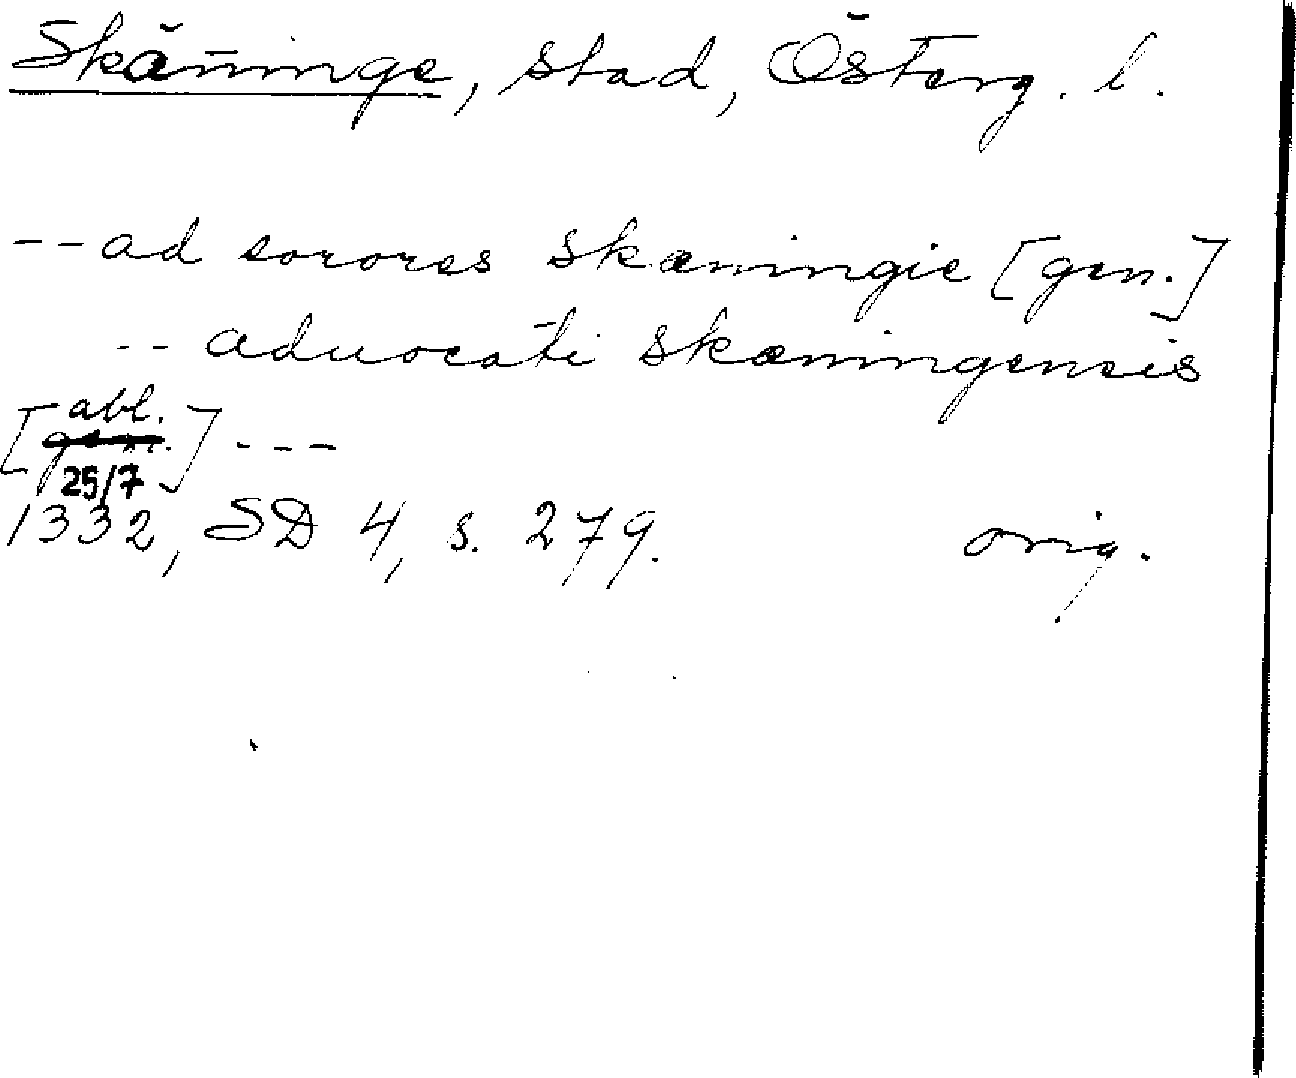 Skänninge, stad, Österg. l.
-- ad sorores skæningie [gen.]
-- aduocati skæningensis
[gen. abl.] ---
25/7
1332, SD 4, s. 279. orig.